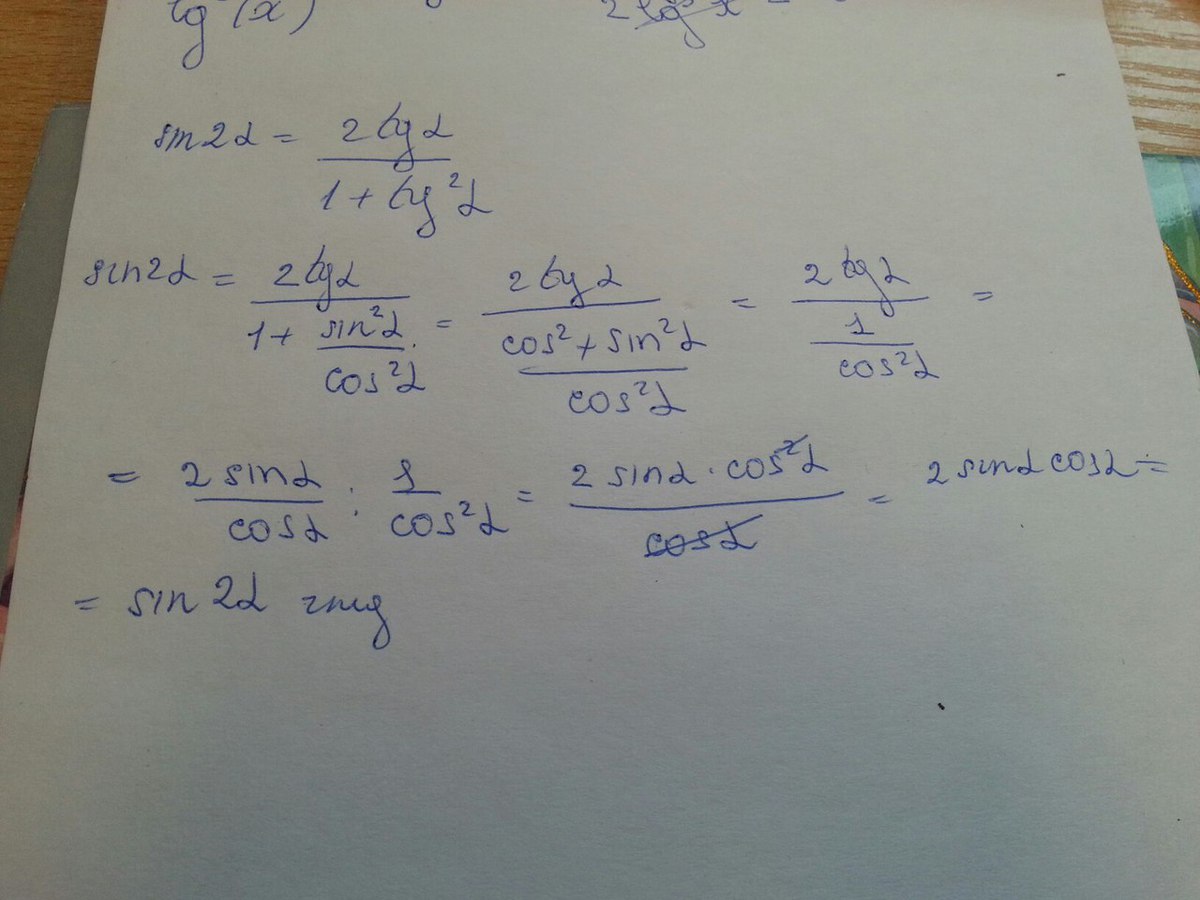 lg (x) 2 log x =
sin2α = 2tgα / 1 + tg²α
sin2α = 2tgα / (1 + sin²α / cos²α) = 2tgα / ((cos² + sin²α) / cos²α) = 2tgα / (1 / cos²α) =
= 2 sinα / cosα : 1 / cos²α = 2 sinα · cos²α / cosα = 2 sinα cosα =
= sin 2α